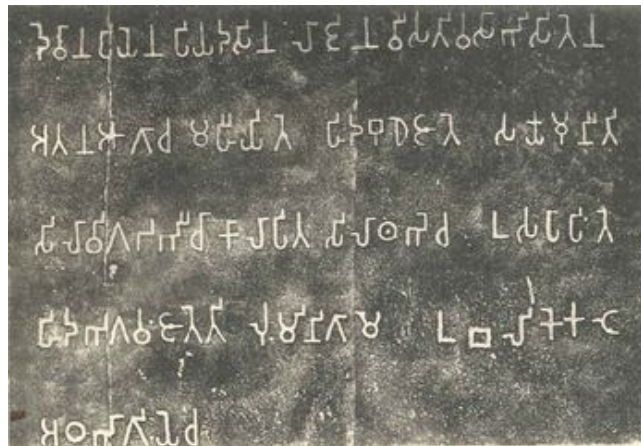 𑀤𑁂𑀯𑀸𑀦𑀧𑀺𑀬𑁂𑀦 𑀧𑀺𑀬𑀤𑀲𑀺𑀦 𑀮𑀸𑀚𑀺𑀦 𑀯𑀻𑀲𑀢𑀺𑀯𑀲𑀸𑀪𑀺𑀲𑀺𑀢𑁂𑀦
𑀅𑀢𑀦 𑀆𑀕𑀸𑀘 𑀫𑀳𑀻𑀬𑀺𑀢𑁂 𑀳𑀺𑀤 𑀩𑀼𑀥𑁂 𑀚𑀸𑀢𑁂 𑀲𑀓𑁆𑀬𑀫𑀼𑀦𑀺 𑀢𑀺
𑀲𑀺𑀮𑀸 𑀯𑀺𑀕𑀥 𑀪𑀺 𑀘𑀸 𑀓𑀸𑀮𑀸𑀧𑀺𑀢 𑀲𑀺𑀮𑀸𑀣𑀪𑁂 𑀘 𑀉𑀲𑀧𑀸𑀧𑀺𑀢𑁂
𑀳𑀺𑀤 𑀪𑀕𑀯𑀁 𑀚𑀸𑀢𑁂 𑀢𑀺 𑀮𑀼𑀁𑀫𑀺𑀦𑀺 𑀕𑀸𑀫𑁂 𑀉𑀩𑀮𑀺𑀓𑁂 𑀓𑀝𑁂
𑀅𑀞𑀪𑀸𑀕𑀺𑀬𑁂 𑀘